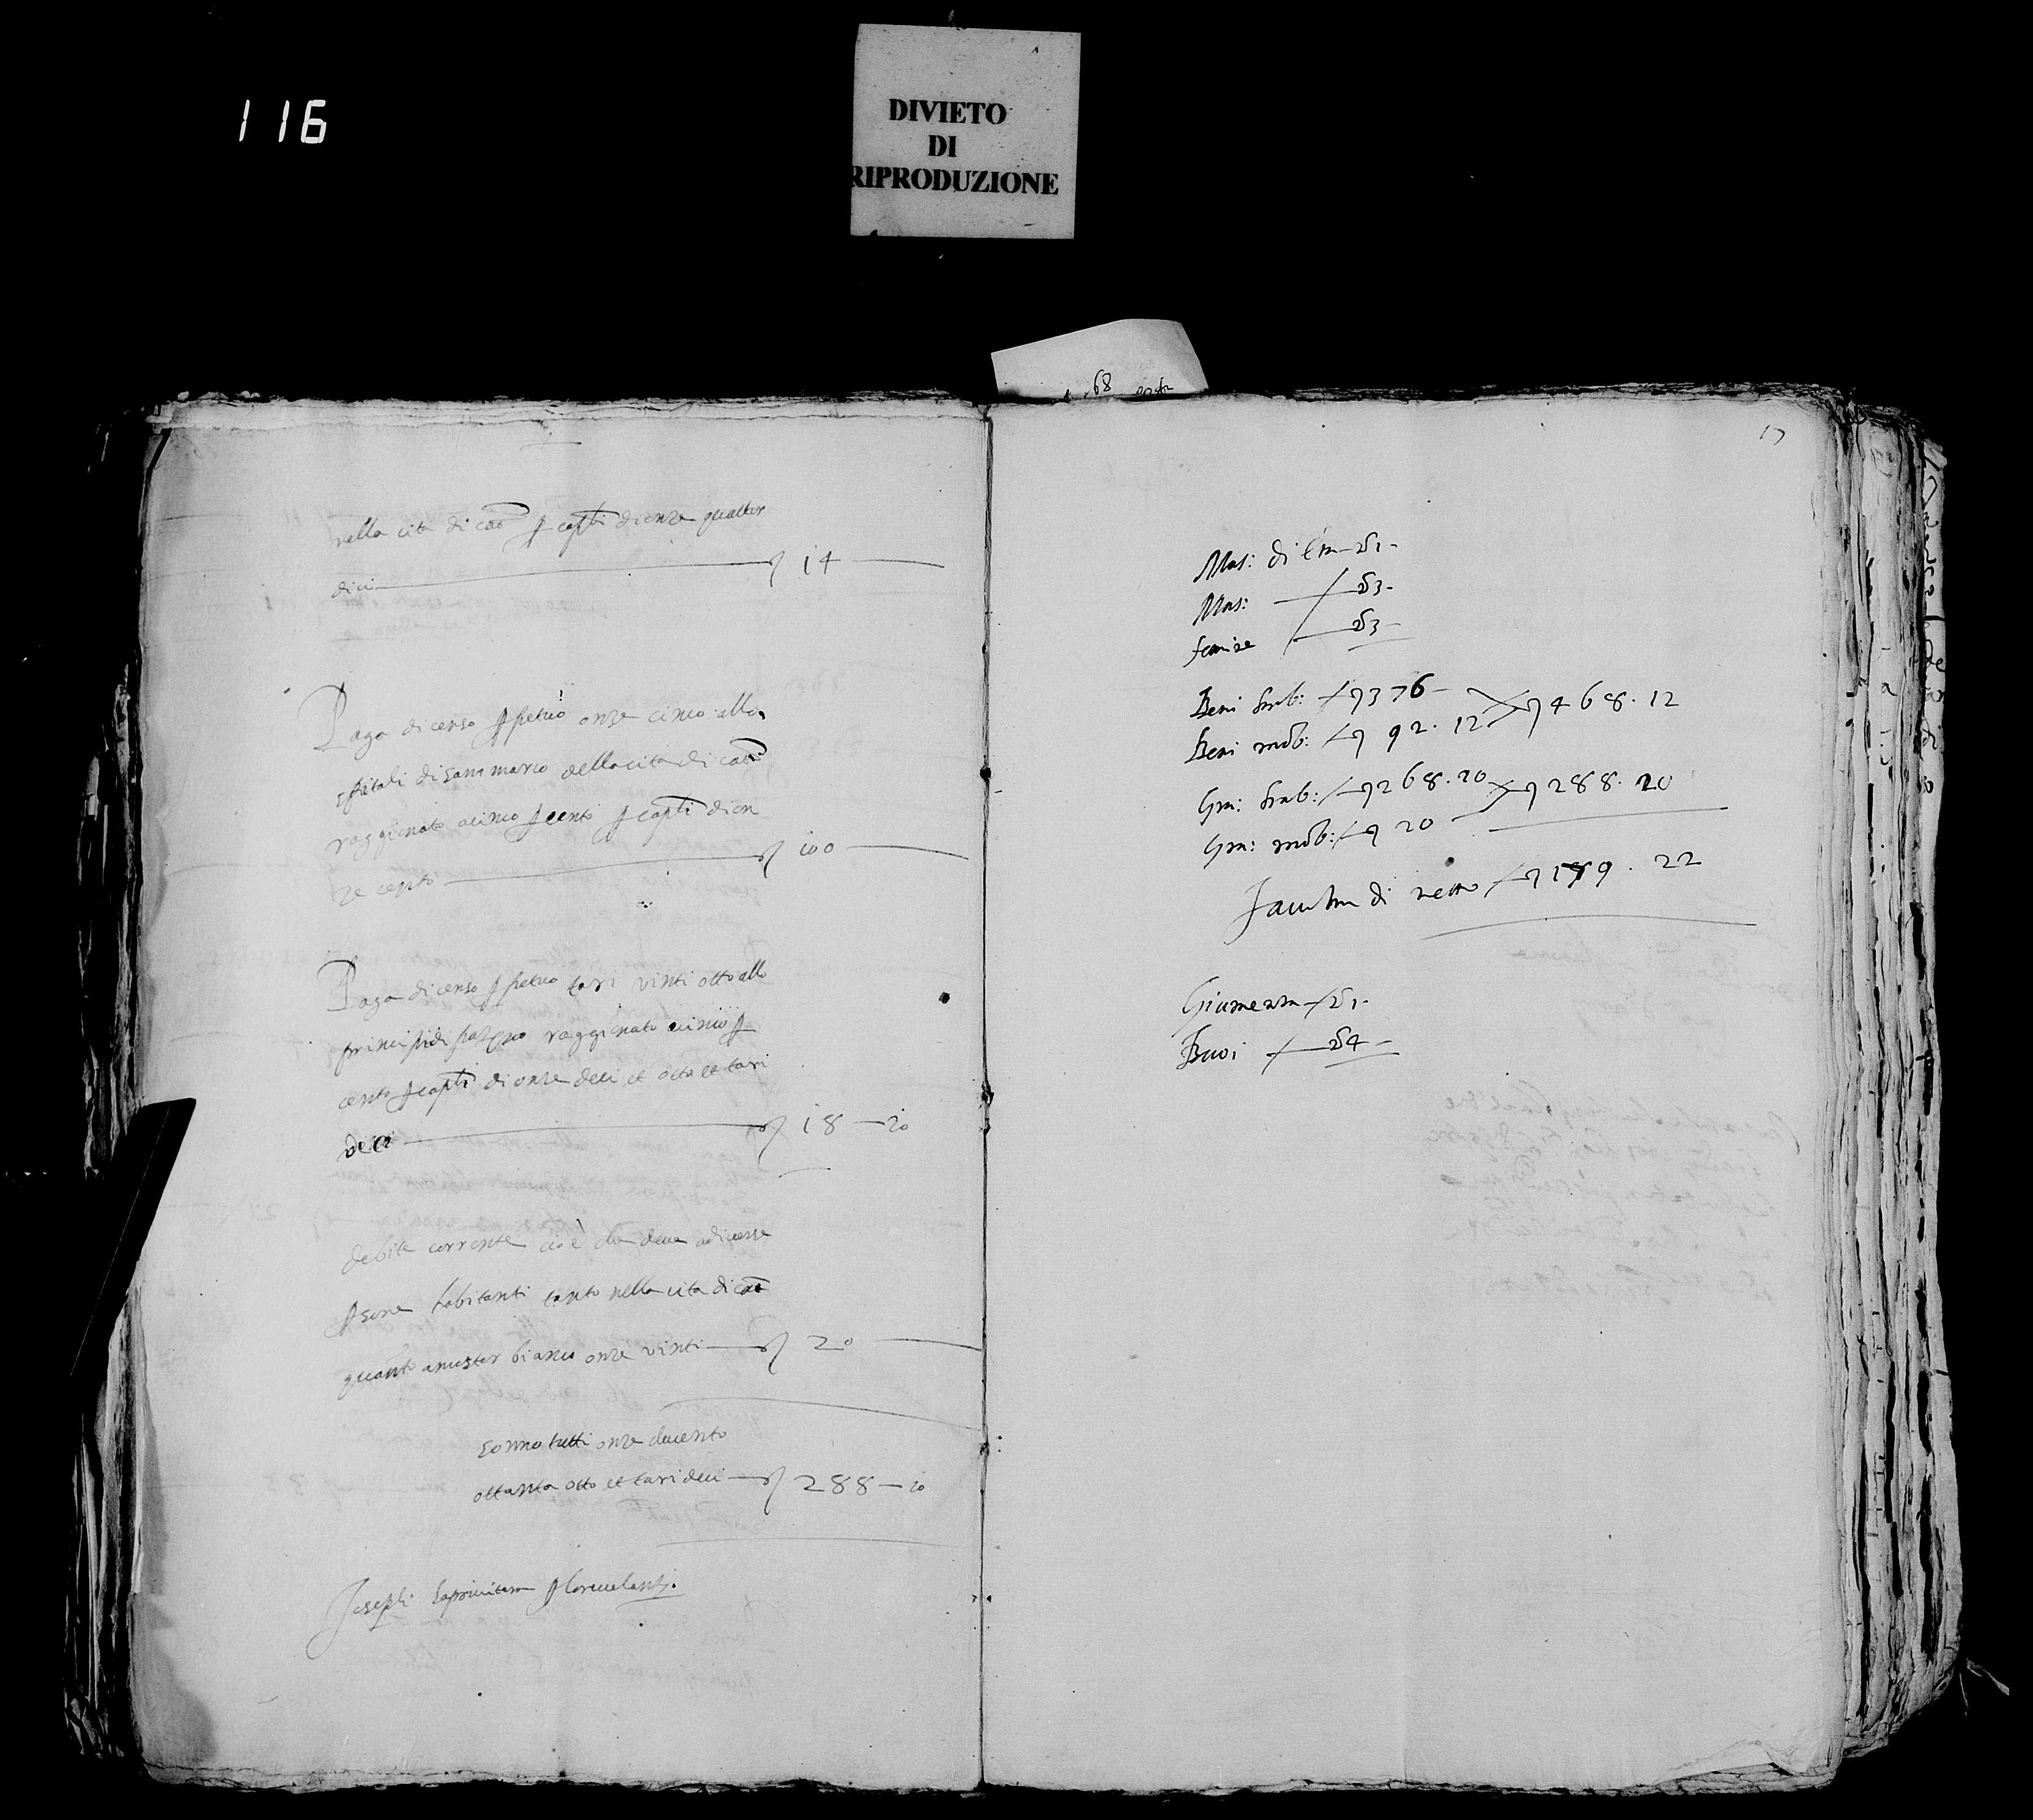 116
DIVIETO
DI
RIPRODUZIONE
68
nella cita di cat.a p capli di onze quattor
dici 14
Paga di censo p petuo onze cinco allo
spitali di sam marco della cita di cat.a
raggionato a cinco p cento p capli di on
ze cento 100
Paga di censo p petuo tari vinti otto allo
principi di raggionato a cinco p
cento p capli di onze deci et otto et tari
deci 18 — 20
debite corrente cioè che deve a diverse
p sone habitanti tanto nella cita di cat.a
quanto a muster bianco onze vinti 20
sonno tutti onze ducento
ottanta otto et tari deci 288 — 20
Joseph
17
Mas: di
Mas: n.o 3
femine n.o 3
Beni stab: 376
Beni mob: 92. 12 468. 12
Gra: stab: 268. 20 288. 20
Gra: mob: 20
di netto 179. 22
Giumenta n.o 1
Buoi n.o 4